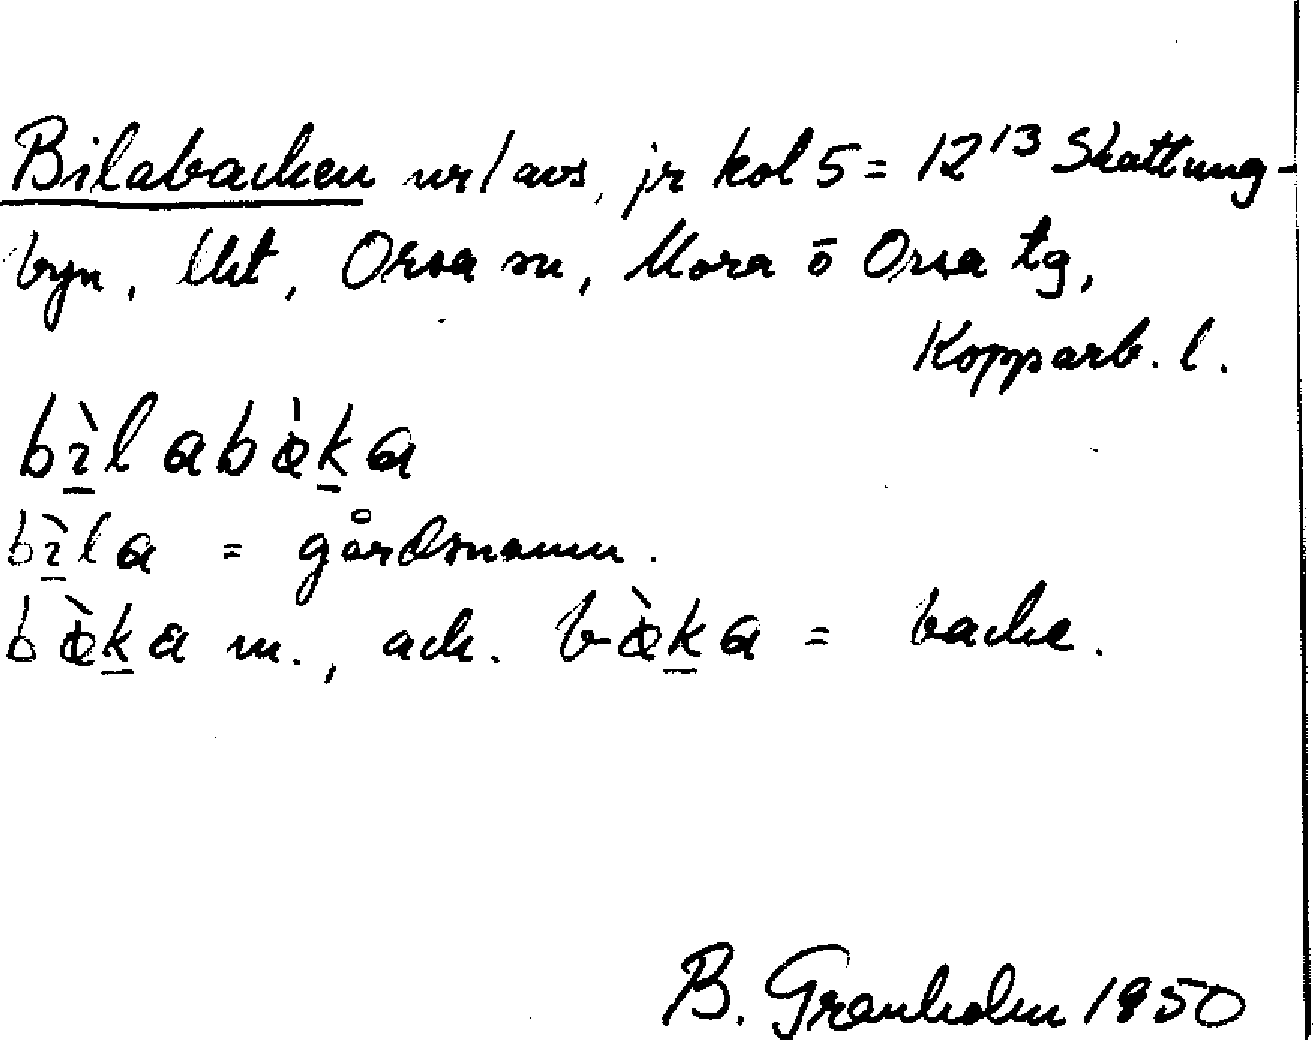 Bilabacken ur/avs, jr kol 5 = 12¹³ Skattung-
byn, Ukt, Orsa sn, Mora o Orsa tg,
Kopparb. l.
bìlabàka
bìla = gårdsnamn.
bàka m., ack. bàka = backe.
B. Granholm 1950